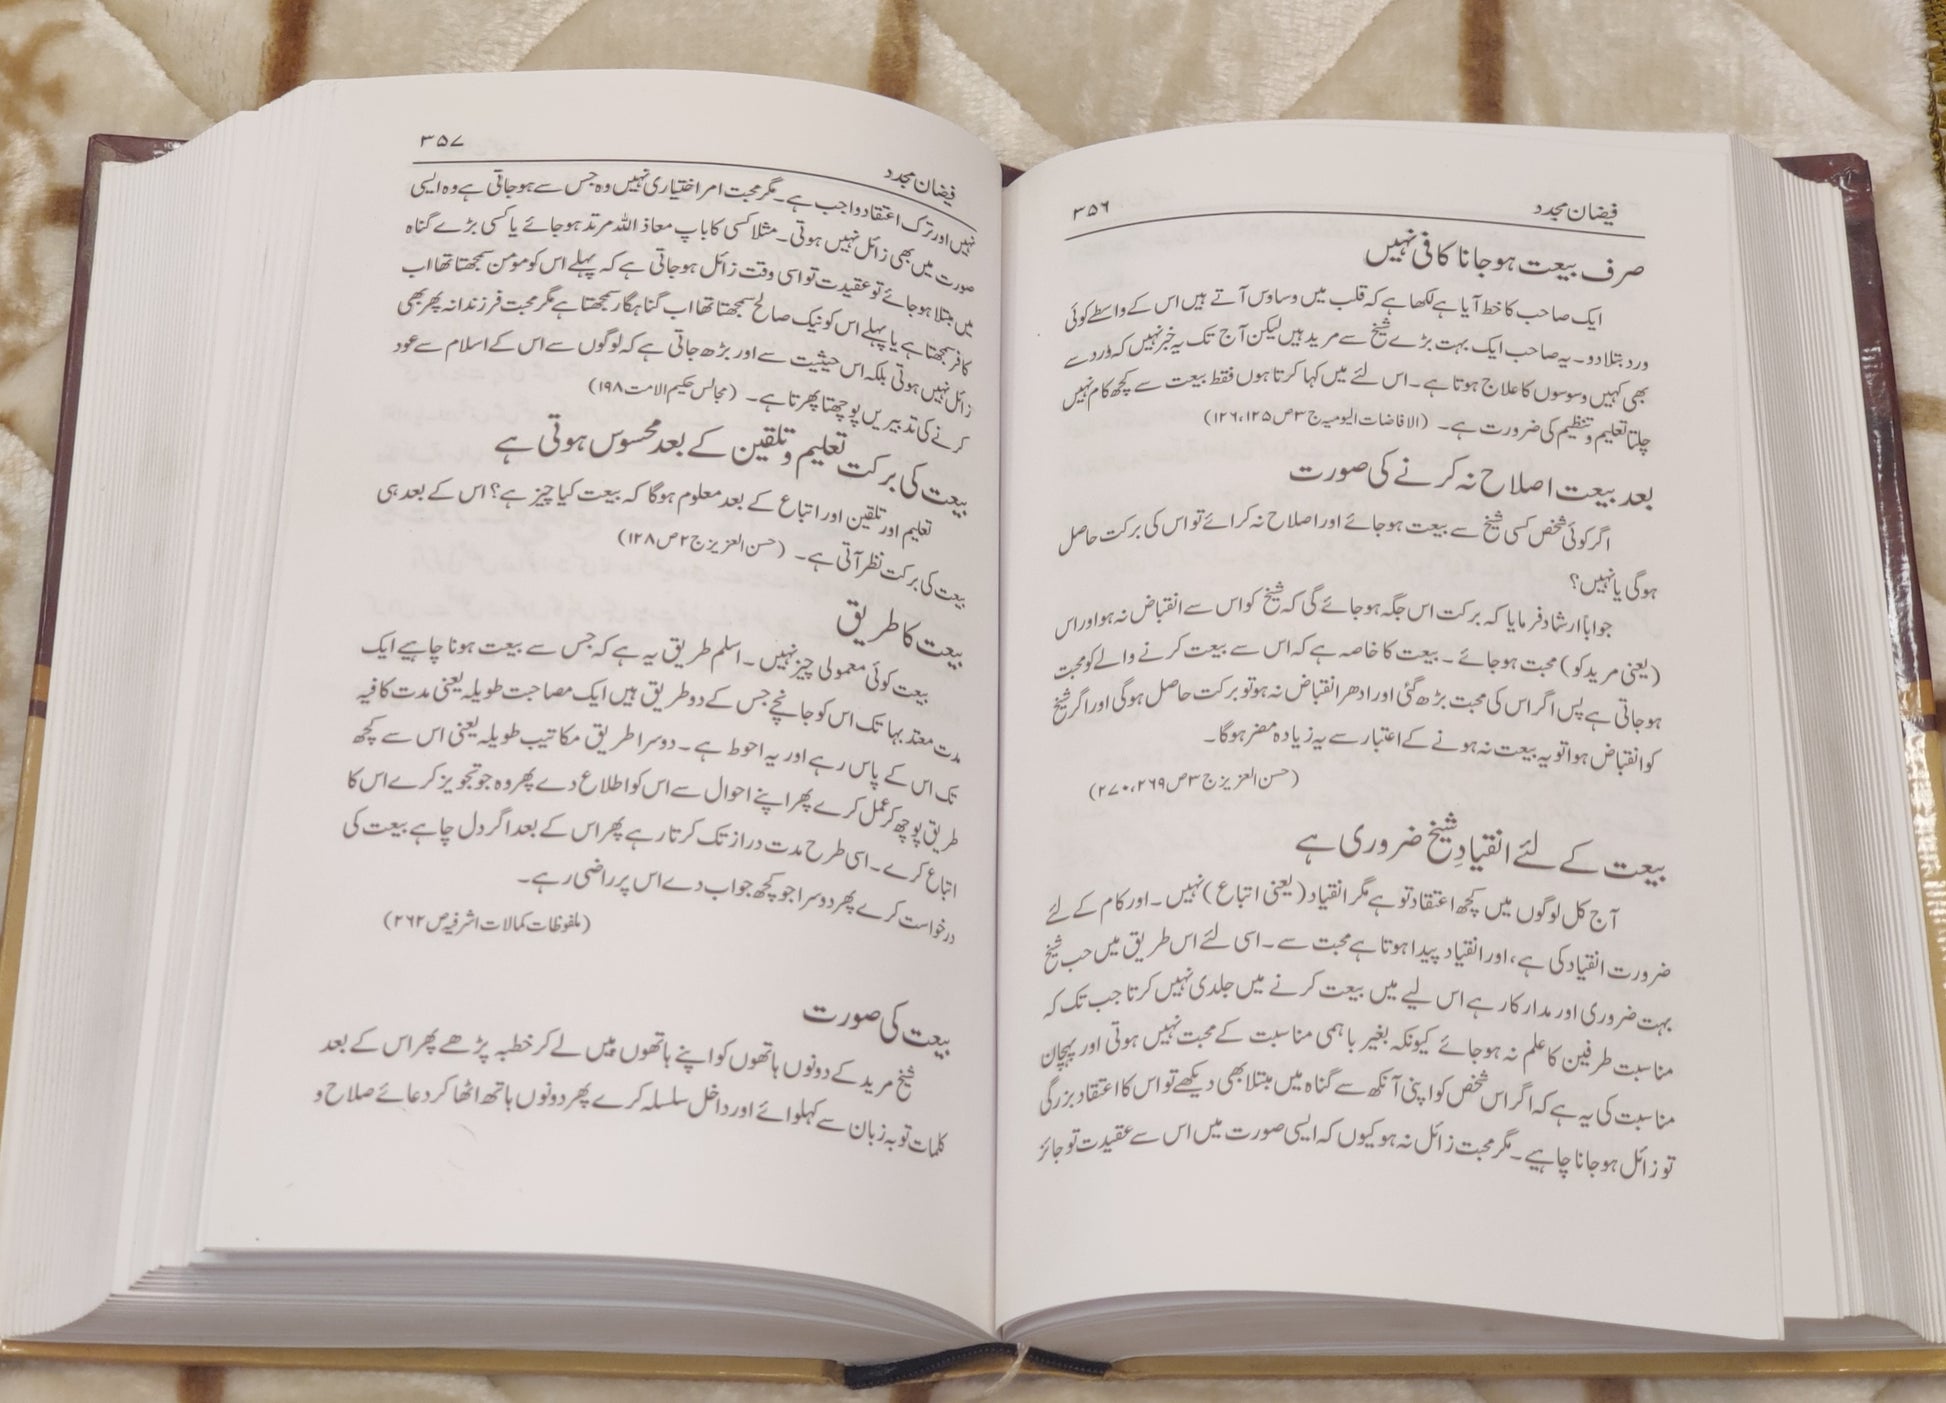 فیضان مجدد ۳۵۶
صرف بیعت ہوجانا کافی نہیں
ایک صاحب کا خط آیا ہے لکھا ہے کہ قلب میں وساوس آتے ہیں اس کے واسطے کوئی
ورد بتلا دو۔ یہ صاحب ایک بہت بڑے شیخ سے مرید ہیں لیکن آج تک یہ خبر نہیں کہ ورد سے
بھی کہیں وسوسوں کا علاج ہوتا ہے۔ اس لئے میں کہا کرتا ہوں فقط بیعت سے کچھ کام نہیں
چلتا تعلیم و تنظیم کی ضرورت ہے۔ (الافاضات الیومیہ ج ۳ ص ۱۲۵، ۱۲۶)
بعد بیعت اصلاح نہ کرنے کی صورت
اگر کوئی شخص کسی شیخ سے بیعت ہوجائے اور اصلاح نہ کرائے تو اس کی برکت حاصل
ہوگی یا نہیں؟
جواباً ارشاد فرمایا کہ برکت اس جگہ ہوجائے گی کہ شیخ کو اس سے انقباض نہ ہو اور اس
(یعنی مرید کو) محبت ہوجائے۔ بیعت کا خاصہ ہے کہ اس سے بیعت کرنے والے کو محبت
ہوجاتی ہے پس اگر اس کی محبت بڑھ گئی اور ادھر انقباض نہ ہو تو برکت حاصل ہوگی اور اگر شیخ
کو انقباض ہوا تو یہ بیعت نہ ہونے کے اعتبار سے یہ زیادہ مضر ہوگا۔
(حسن العزیز ج ۳ ص ۲۶۹، ۲۷۰)
بیعت کے لئے انقیادِ شیخ ضروری ہے
آج کل لوگوں میں کچھ اعتقاد تو ہے مگر انقیاد (یعنی اتباع) نہیں۔ اور کام کے لئے
ضرورت انقیاد کی ہے، اور انقیاد پیدا ہوتا ہے محبت سے۔ اسی لئے اس طریق میں حب شیخ
بہت ضروری اور مدار کار ہے اس لیے میں بیعت کرنے میں جلدی نہیں کرتا جب تک کہ
مناسبت طرفین کا علم نہ ہوجائے کیونکہ بغیر باہمی مناسبت کے محبت نہیں ہوتی اور پہچان
مناسبت کی یہ ہے کہ اگر اس شخص کو اپنی آنکھ سے گناہ میں مبتلا بھی دیکھے تو اس کا اعتقاد بزرگی
تو زائل ہوجانا چاہیے۔ مگر محبت زائل نہ ہو کیوں کہ ایسی صورت میں اس سے عقیدت تو جائز
فیضان مجدد ۳۵۷
نہیں اور ترک اعتقاد واجب ہے۔ مگر محبت امر اختیاری نہیں وہ جس سے ہوجاتی ہے وہ ایسی
صورت میں بھی زائل نہیں ہوتی۔ مثلا کسی کا باپ معاذ اللہ مرتد ہوجائے یا کسی بڑے گناہ
میں مبتلا ہوجائے تو عقیدت تو اسی وقت زائل ہوجاتی ہے کہ پہلے اس کو مومن سمجھتا تھا اب
کافر سمجھتا ہے یا پہلے اس کو نیک صالح سمجھتا تھا اب گناہگار سمجھتا ہے مگر محبت فرزندانہ پھر بھی
زائل نہیں ہوتی بلکہ اس حیثیت سے اور بڑھ جاتی ہے کہ لوگوں سے اس کے اسلام سے عود
کرنے کی تدبیریں پوچھتا پھرتا ہے۔ (مجالس حکیم الامت ۱۹۸)
بیعت کی برکت تعلیم و تلقین کے بعد محسوس ہوتی ہے
تعلیم اور تلقین اور اتباع کے بعد معلوم ہوگا کہ بیعت کیا چیز ہے؟ اس کے بعد ہی
بیعت کی برکت نظر آتی ہے۔ (حسن العزیز ج ۲ ص ۱۲۸)
بیعت کا طریق
بیعت کوئی معمولی چیز نہیں۔ اسلم طریق یہ ہے کہ جس سے بیعت ہونا چاہیے ایک
مدت معتد بہا تک اس کو جانچے جس کے دو طریق ہیں ایک مصاحبت طویلہ یعنی مدت کافیہ
تک اس کے پاس رہے اور یہ احوط ہے۔ دوسرا طریق مکاتیب طویلہ یعنی اس سے کچھ
طریق پوچھ کر عمل کرے پھر اپنے احوال سے اس کو اطلاع دے پھر وہ جو تجویز کرے اس کا
اتباع کرے۔ اسی طرح مدت دراز تک کرتا رہے پھر اس کے بعد اگر دل چاہے بیعت کی
درخواست کرے پھر دوسرا جو کچھ جواب دے اس پر راضی رہے۔
(ملفوظات کمالات اشرفیہ ص ۲۶۲)
بیعت کی صورت
شیخ مرید کے دونوں ہاتھوں کو اپنے ہاتھوں میں لے کر خطبہ پڑھے پھر اس کے بعد
کلمات توبہ زبان سے کہلوائے اور داخل سلسلہ کرے پھر دونوں ہاتھ اٹھا کر دعائے صلاح و